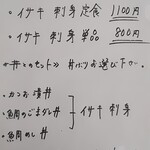 ・イサキ 刺身 定食 1100円
・イサキ 刺身 単品 800円
≪丼とのセット≫ 丼よりお選び下さい。
・カツお漬丼
・魚問のごまダレ丼 イサキ 刺身
・魚問めし丼